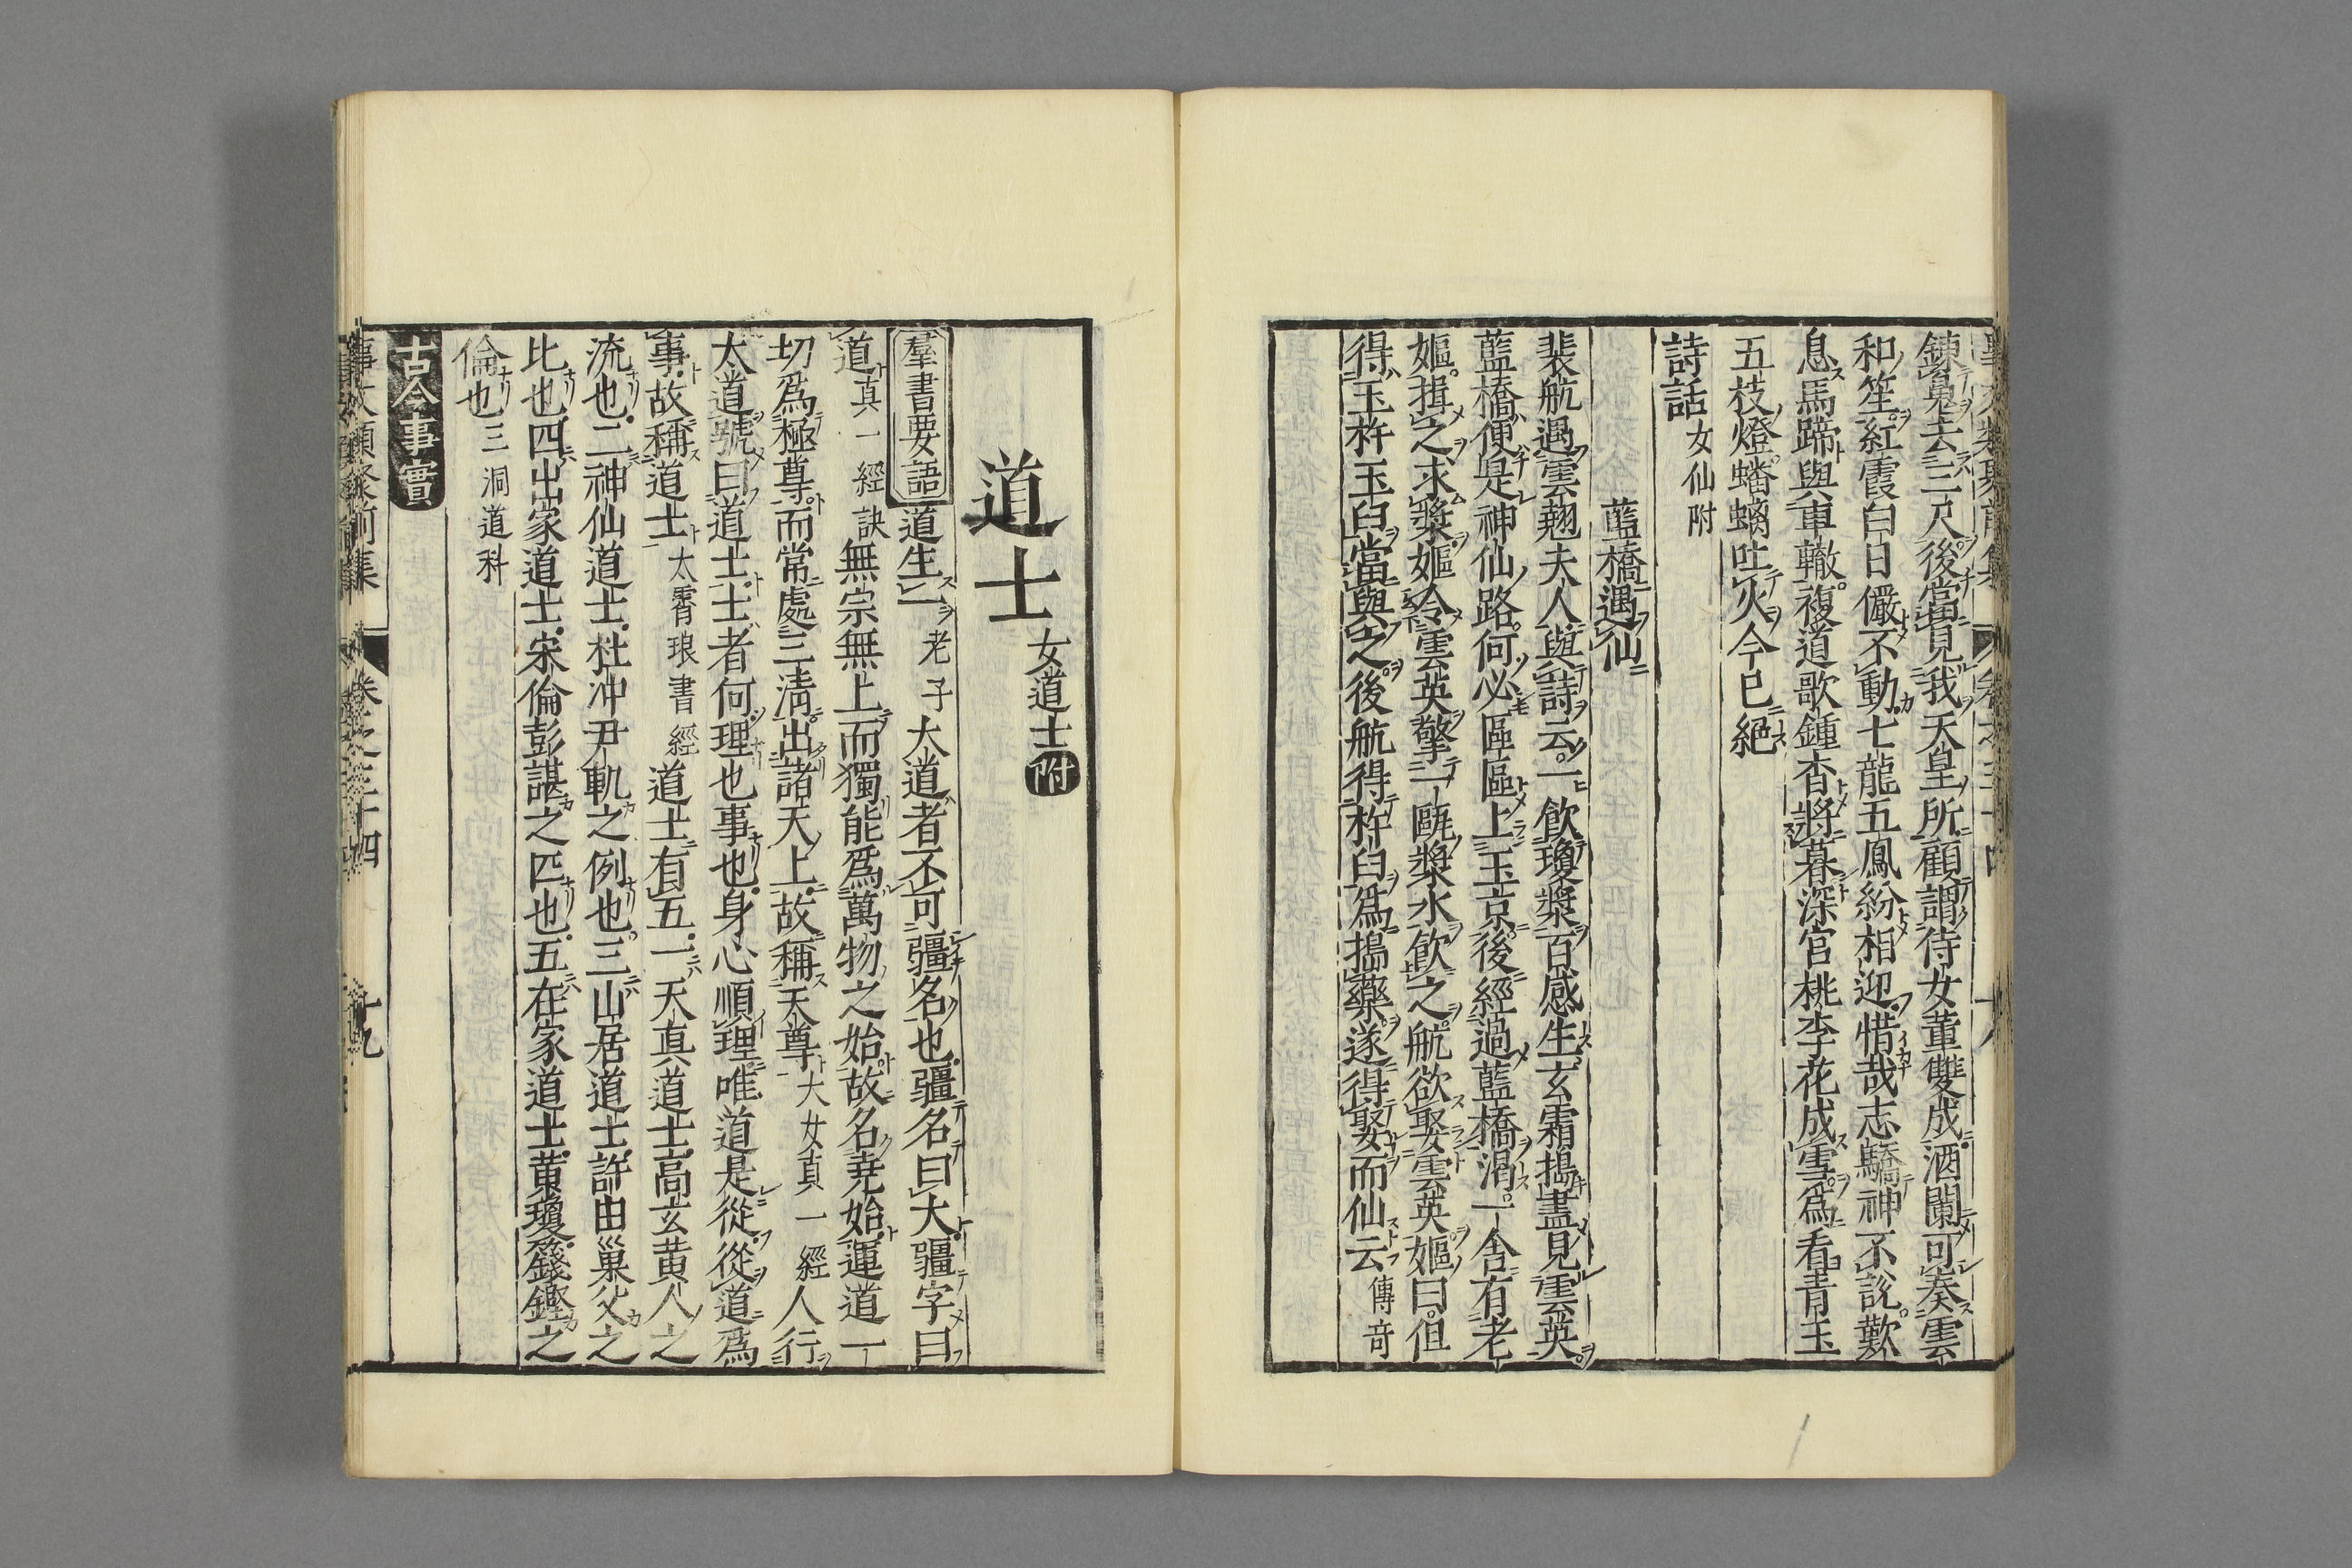 錬鬼去三尺後當見我天皇所顧謂侍女董雙成酒闌可奏雲
和笙紅霞白日儼不動七龍五鳳紛相迎惜哉志驕神不說歎
息馬蹄與車轍複道歌鍾杳將暮深宮桃李花成雪爲看青玉
五枝燈蟠螭吐火今已絕
詩話女仙附
藍橋遇仙
裴航遇雲翹夫人與詩云一飲瓊漿百感生玄霜搗盡見雲英
藍橋便是神仙路何必區區上玉京後經過藍橋渴一舍有老
嫗揖之求漿嫗令雲英擎一甌漿水飲之航欲娶雲英嫗曰但
得玉杵玉臼當與之後航得杵臼爲搗藥遂得娶而仙云傳奇
道士女道士附
羣書要語道生一老子大道者不可彊名也彊名曰大彊字曰
道真一經訣無宗無上而獨能爲萬物之始故名堯始運道一
切爲極尊而常處三清出諸天上故稱天尊大女真一經人行
太道號曰道士士者何理也事也身心順理唯道是從從道爲
事故稱道士太霄琅書經道士有五一天真道士高玄黄人之
流也二神仙道士杜冲尹軌之例也三山居道士許由巢父之
比也四出家道士宋倫彭諶之匹也五在家道士黄瓊籛鏗之
倫也三洞道科
古今事實
卷之三十四
十九